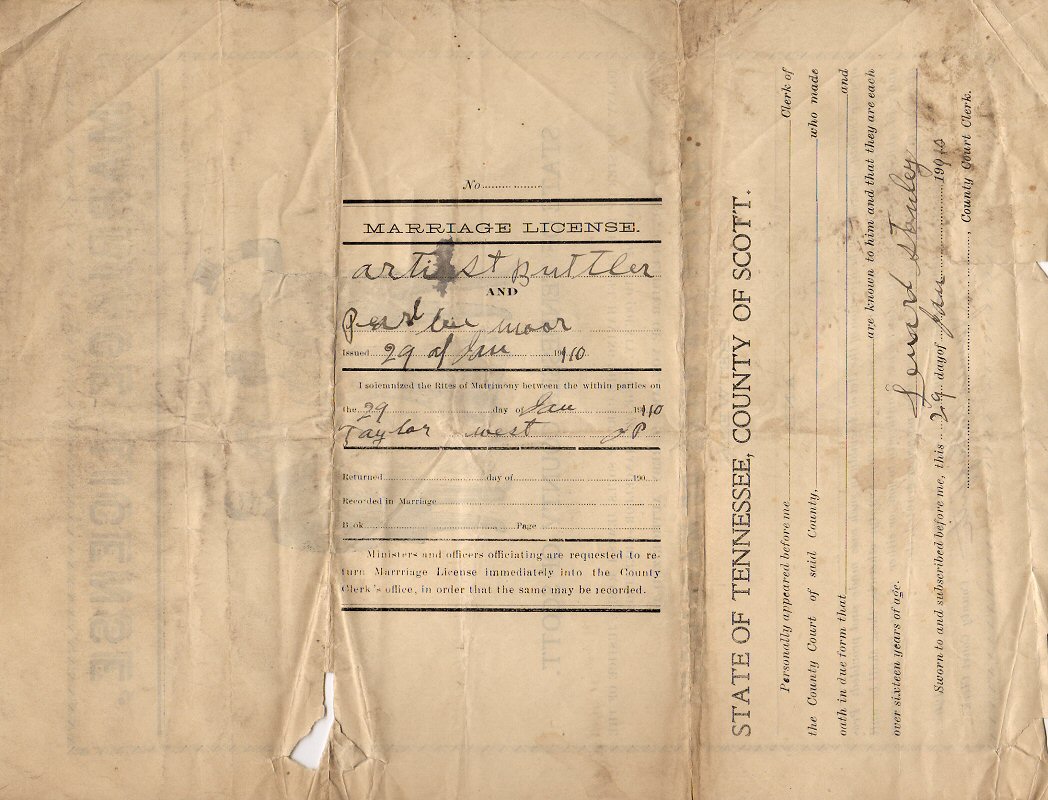 No
MARRIAGE LICENSE.
artist Buttler
AND
Pearl lee moor
Issued 29 of Jan 1910
I solemnized the Rites of Matrimony between the within parties on
the 29 day of Jan 1910
Taylor west JP
Returned day of 190
Recorded in Marriage
Book Page
Ministers and officers officiating are requested to re-
turn Marrriage License immediately into the County
Clerk's office, in order that the same may be recorded.
STATE OF TENNESSEE, COUNTY OF SCOTT.
Personally appeared before me Clerk of
the County Court of said County, who made
oath in due form that and
are known to him and that they are each
over sixteen years of age.
Sworn to and subscribed before me, this 29 day of Jan 1910
, County Court Clerk.